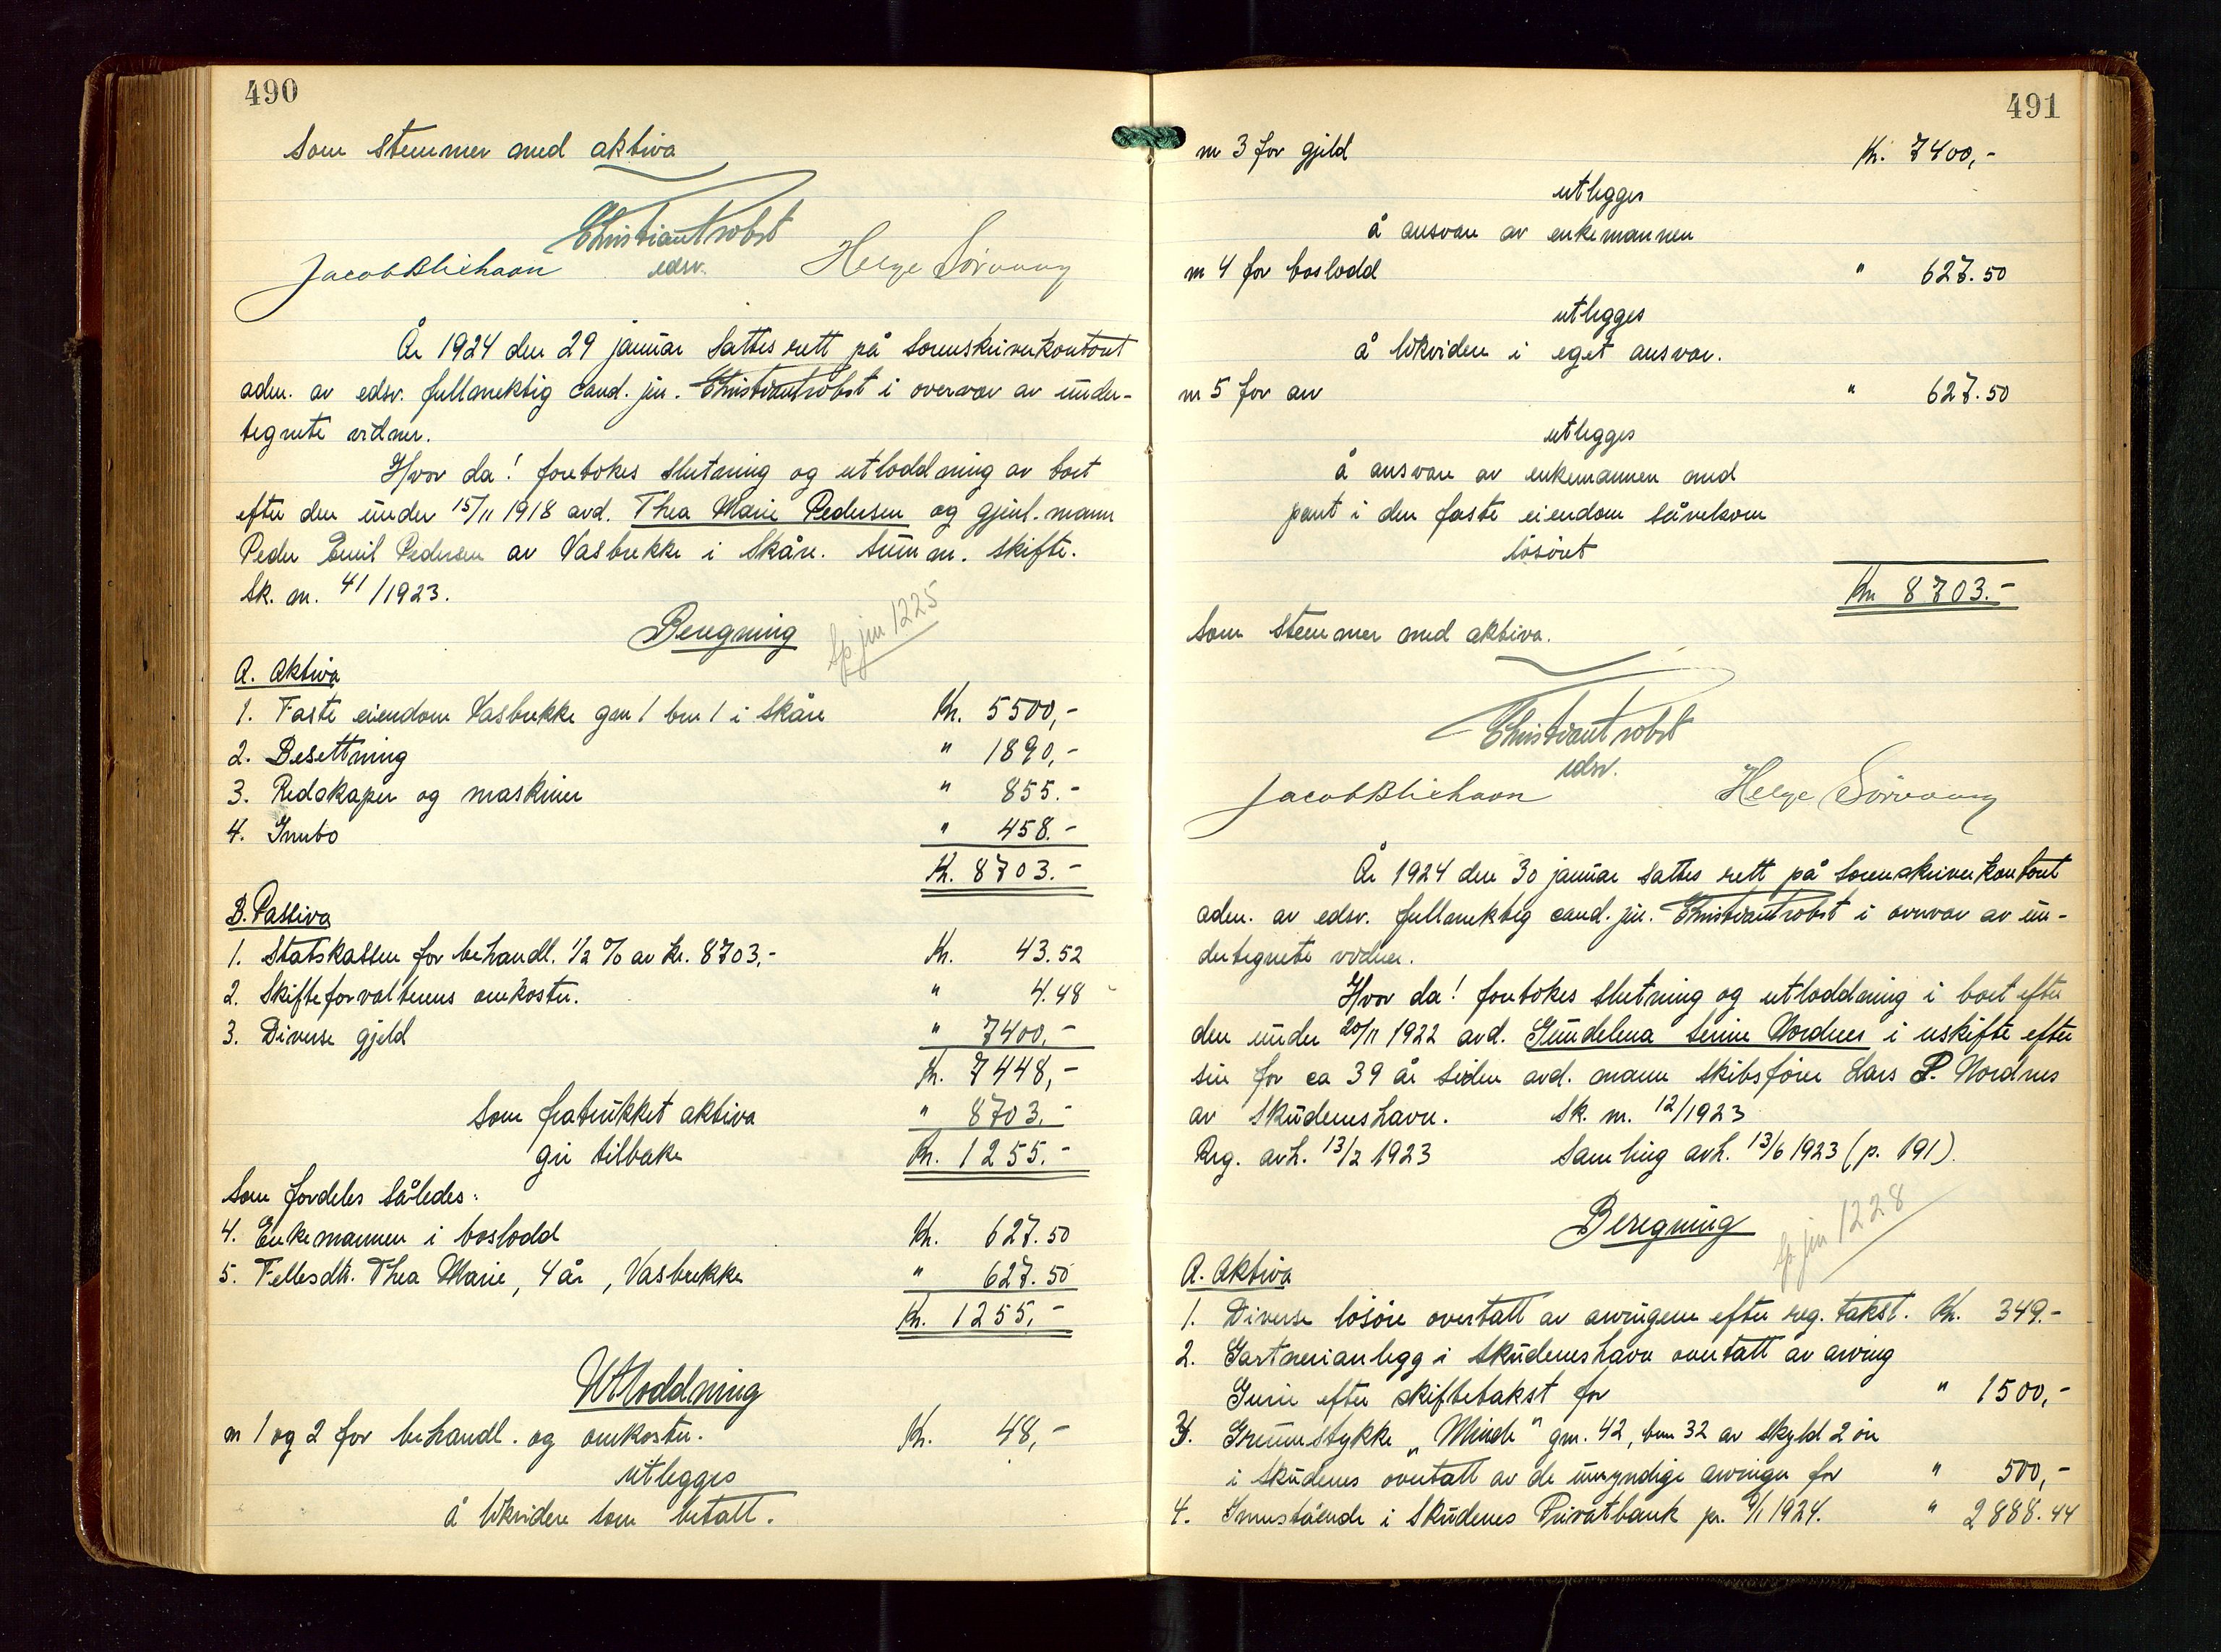 490
Som stemmer med aktiva
Christian Probst
edsv.
Helge Sörvaag
År 1924 den 29 januar sattes rett på sorenskriverkontoret
adm. av edsv. fullmektig cand. jur. Christian Probst i overvær av under-
tegnete vidner.
Hvor da! foretokes slutning og utloddning av boet
efter den under 15/11 1918 avd. Thea Marie Pedersen og gjenl. mann
Peder Emil Pedersen av Vasbrekke i Skåre. Summ. skifte.
Sk. nr. 41/1923.
Beregning
Sp. jnr 1225
A. Aktiva
1. Faste eiendom Vasbrekke gnr 1 bnr 1 i Skåre Kr. 5500,-
2. Besettning " 1890,-
3. Redskaper og maskiner " 855.-
4. Innbo " 458.-
Kr. 8703.-
B. Passiva
1. Statskassen for behandl. 1/2 % av kr. 8703,- Kr. 43.52
2. Skifteforvalterens omkostn. " 4.48
3. Diverse gjeld " 7400,-
Kr. 7448,-
Som fratrukket aktiva " 8703.-
gir tilbake Kr. 1255.-
Som fordeles således:
4. Enkemannen i boslodd Kr. 627.50
5. Fellesdtr. Thea Marie, 4 år, Vasbrekke " 627.50
Kr. 1255,-
Utloddning
nr 1 og 2 for behandl. og omkostn. Kr. 48,-
utlegges
å likvidere som betalt.
491
nr 3 for gjeld Kr. 7400,-
utlegges
å ansvare av enkemannen
nr 4 for boslodd " 627.50
utlegges
å likvidere i eget ansvar.
nr 5 for arv " 627.50
utlegges
å ansvare av enkemannen med
pant i den faste eiendom såvelsom
lösöret
Kr 8703.-
Som stemmer med aktiva.
Christian Probst
edsv.
Helge Sörvaag
År 1924 den 30 januar sattes rett på sorenskriverkontoret
adm. av edsv. fullmektig cand. jur. Christian Probst i overvær av un-
dertegnete vidner.
Hvor da! foretokes slutning og utloddning i boet efter
den under 20/11 1922 avd. Gundelena Serine Nordnes i uskifte efter
sin for ca 39 år siden avd. mann skibsförer Lars P. Nordnes
av Skudeneshavn. Sk. nr. 12/1923
Reg. avh. 13/2 1923 Samling avh. 13/6 1923 (p. 191).
Beregning
Sp. jnr 1228
A. Aktiva
1. Diverse lösöre overtatt av arvingene efter reg. takst. Kr. 349.-
2. Gartnerianlegg i Skudeneshavn overtatt av arving
Gurie efter skiftetakst for " 1500,-
3. Grunnstykke "Minde" gnr. 42, bnr 32 av skyld 2 öre
i Skudenes overtatt av de umyndige arvinger for " 500,-
4. Innestående i Skudenes Privatbank pr. 9/1 1924. " 2888.44